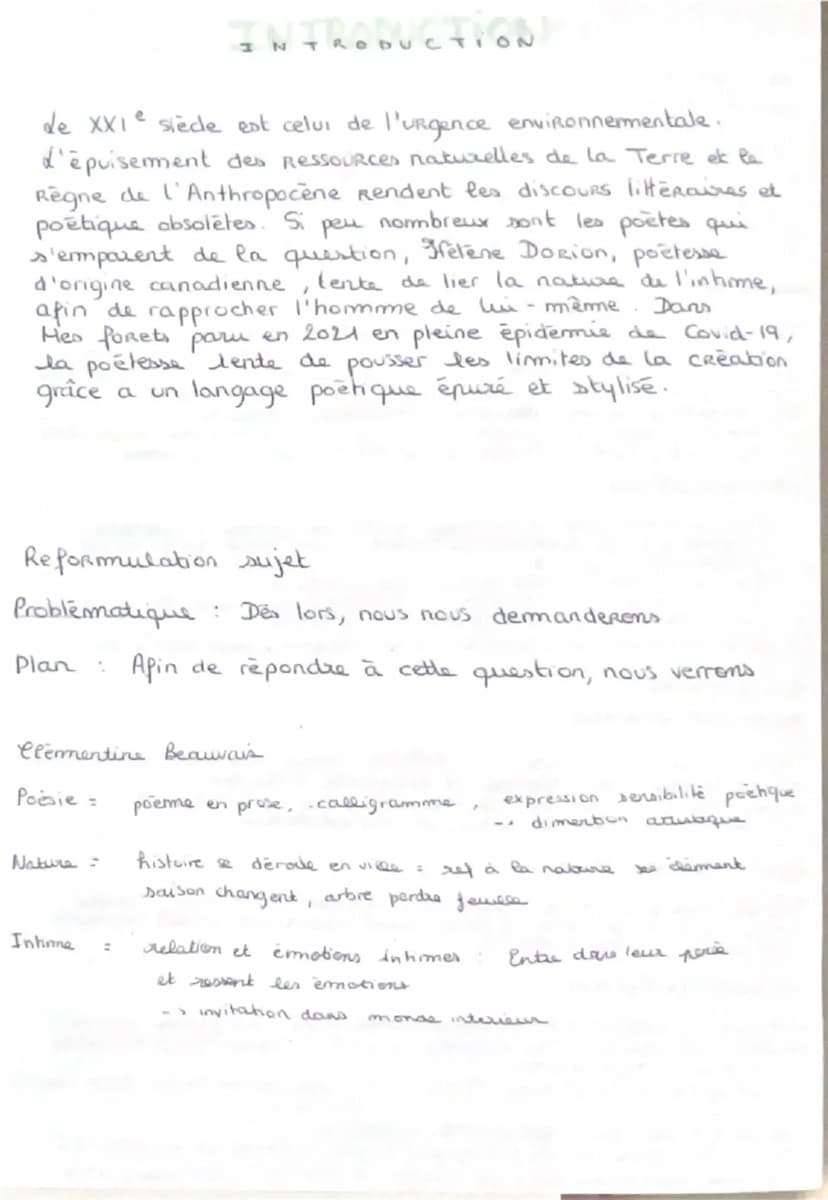 INTRODUCTION
Le XXIe siècle est celui de l'urgence environnementale.
L'épuisement des ressources naturelles de la Terre et le
Règne de l'Anthropocène rendent les discours littéraires et
poëtique obsolètes. Si peu nombreux sont les poètes qui
s'emparent de la question, Hélène Dorion, poëtesse
d'origine canadienne, tente de lier la nature de l'intime,
afin de rapprocher l'homme de lui-même. Dans
Mes forets paru en 2021 en pleine épidemie de Covid-19,
la poëtesse tente de pousser les limites de la création
grâce a un langage poëtique épuré et stylisé.
Reformulation sujet
Problématique : Dès lors, nous nous demanderons
Plan : Afin de répondre à cette question, nous verrons
Clémentine Beauvais
Poésie = poème en prose, calligramme, expression sensibilité poétique
-> dimension
Nature = histoire se déroule en ville = ref à la nature
saison changent, arbre perdre
Intime = relation et émotions intimes : Entre dans leur
et ressent les émotions
-> invitation dans monde interieur